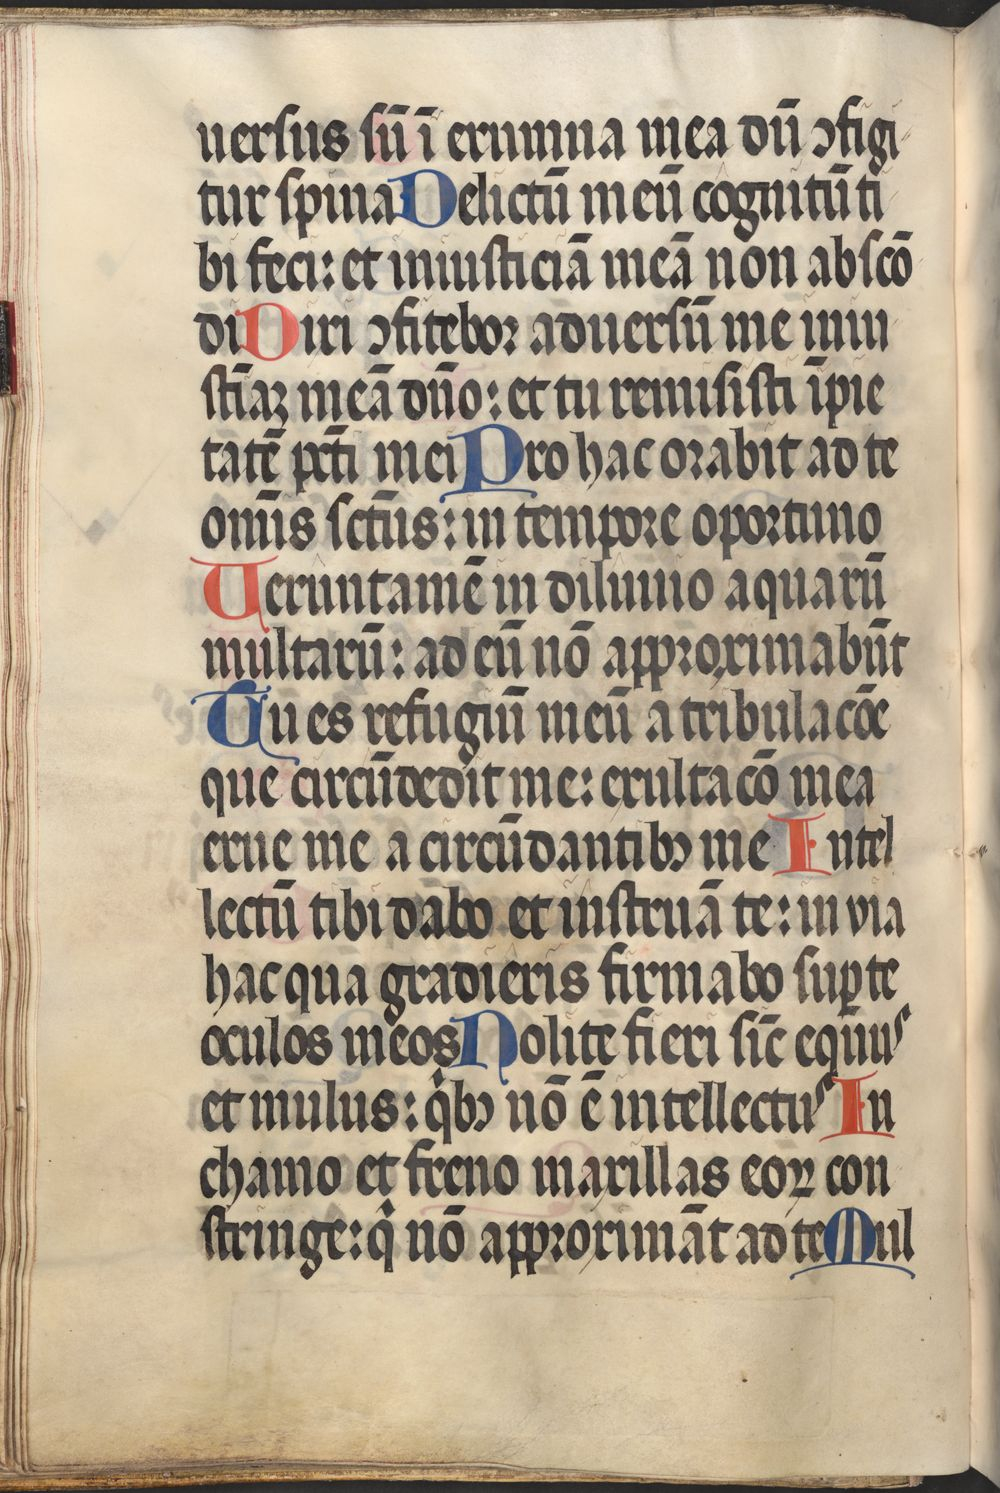 uersus sū ī erumna mea dū ɔfigi
tur spina Delictū meū cognitū ti
bi feci: et iniusticiā meā non abscō
di Dixi ɔfitebor aduersū me iniu
stiāꝝ meā dn̄o: et tu remisisti īpie
tatē pctī mei Pro hac orabit ad te
om̄is sctūs: in tempore oportuno
Ueruntamē in diluuio aquarū
multarū: ad eū nō approximabūt
Tu es refugiū meū a tribulacōe
que circūdedit me: exultacō mea
erue me a circūdantibꝫ me Intel
lectū tibi dabo et instruā te: in via
hac qua gradieris firmabo suꝑ te
oculos meos Nolite fieri sic̄ equus
et mulus: qͥbꝫ nō ē intellectus In
chamo et freno maxillas eoꝝ con
stringe: qͥ nō approximāt ad te Mul